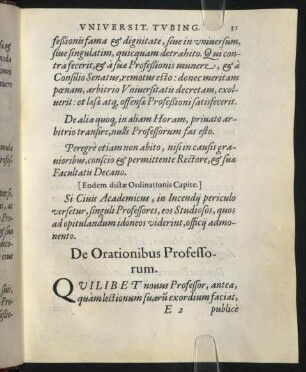 VNIVERSIT. TVBING. 51
fessionis fama & dignitate, siue in vniuersum,
siue singulatim, quicquam detrahito. Qui con
tra fecerit, & à sua Professionis munere, & à
Consilio Senatus, remotus esto: donec meritam
pœnam, arbitrio Vniuersitatis decretam, exol-
uerit: et læsæ atq, offensæ Professioni satisfecerit.
De alia quoq, in aliam Horam, priuato ar-
bitrio transire, nulli Professorum fas esto.
Peregrè etiam non abito, nisi in causis gra-
uioribus, conscio & permittente Rectore, & suæ
Facultatis Decano.
[Eodem dictæ Ordinationis Capite.]
Si Ciuis Academicus, in Incendij periculo
versetur, singuli Professores, eos Studiosos, quos
ad opitulandum idoneos viderint, officij admo-
nento.
De Orationibus Professo-
rum.
QVILIBET nouus Professor, antea,
quàm lectionum suarū exordium faciat,
E 2 publicè